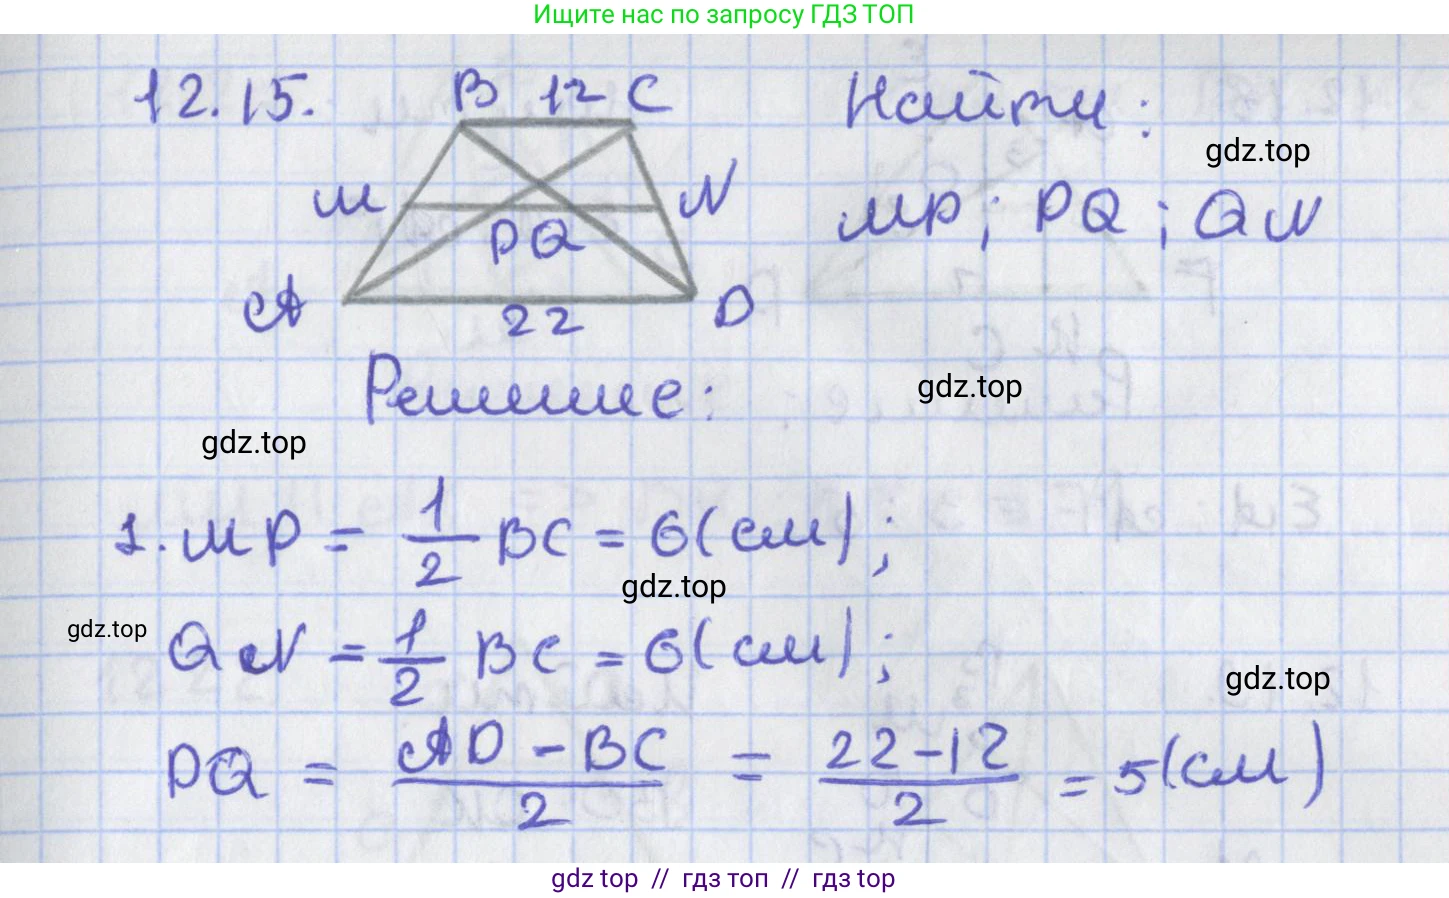 Ищите нас по запросу ГДЗ ТОП
12.15.
B 12 C
Найти:
gdz.top
M N
MP; PQ; QN
PQ
A D
22
Решение:
gdz.top
gdz.top
1. MP = 1/2 BC = 6(см);
gdz.top
gdz.top
QN = 1/2 BC = 6(см);
gdz.top
PQ = AD - BC / 2 = 22-12 / 2 = 5(см)
gdz top // гдз топ // гдз top